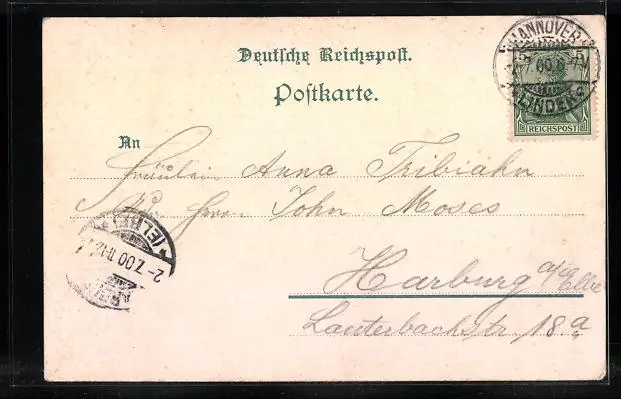 Deutsche Reichspost.
Postkarte.
HANNOVER
LINDEN
5
REICHSPOST
An
Fräulein Anna Tribiahn
Herrn John Moses
Harburg a/d Elbe
Lauterbachstr. 18.a
(ELBE)
2-7.00 11-12